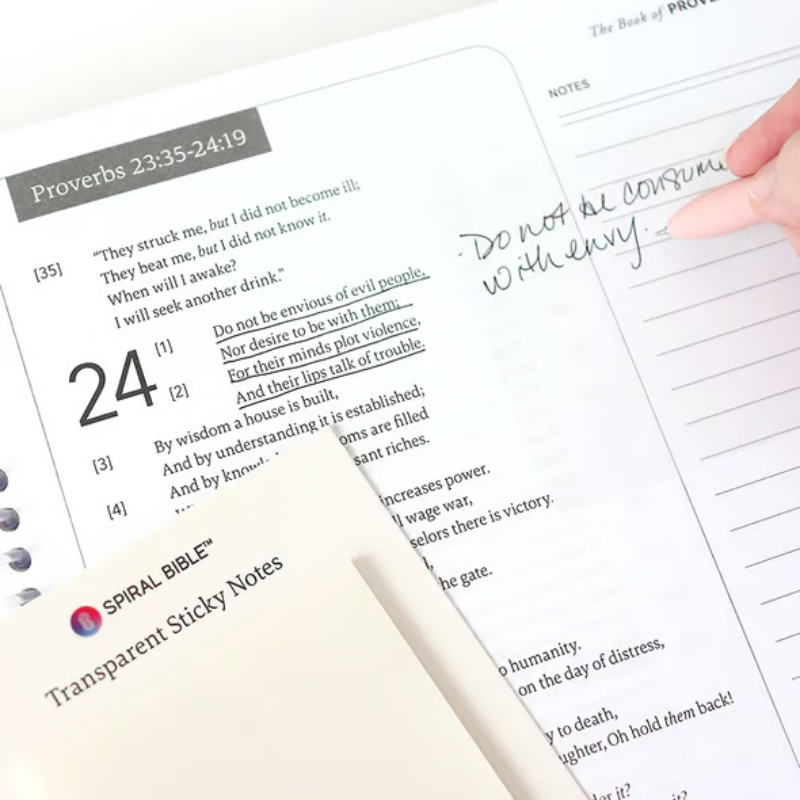 The Book of
NOTES
Proverbs 23:35-24:19
[35] "They struck me, but I did not become ill;
They beat me, but I did not know it.
When will I awake?
I will seek another drink."
Do not be consume
with envy.
24 [1] Do not be envious of evil people,
Nor desire to be with them;
[2] For their minds plot violence,
And their lips talk of trouble.
[3] By wisdom a house is built,
And by understanding it is established;
[4] And by oms are filled
sant riches.
increases power.
wage war,
selors there is victory.
he gate.
o humanity.
on the day of distress,
y to death,
ughter, Oh hold them back!
it?
SPIRAL BIBLE™
Transparent Sticky Notes